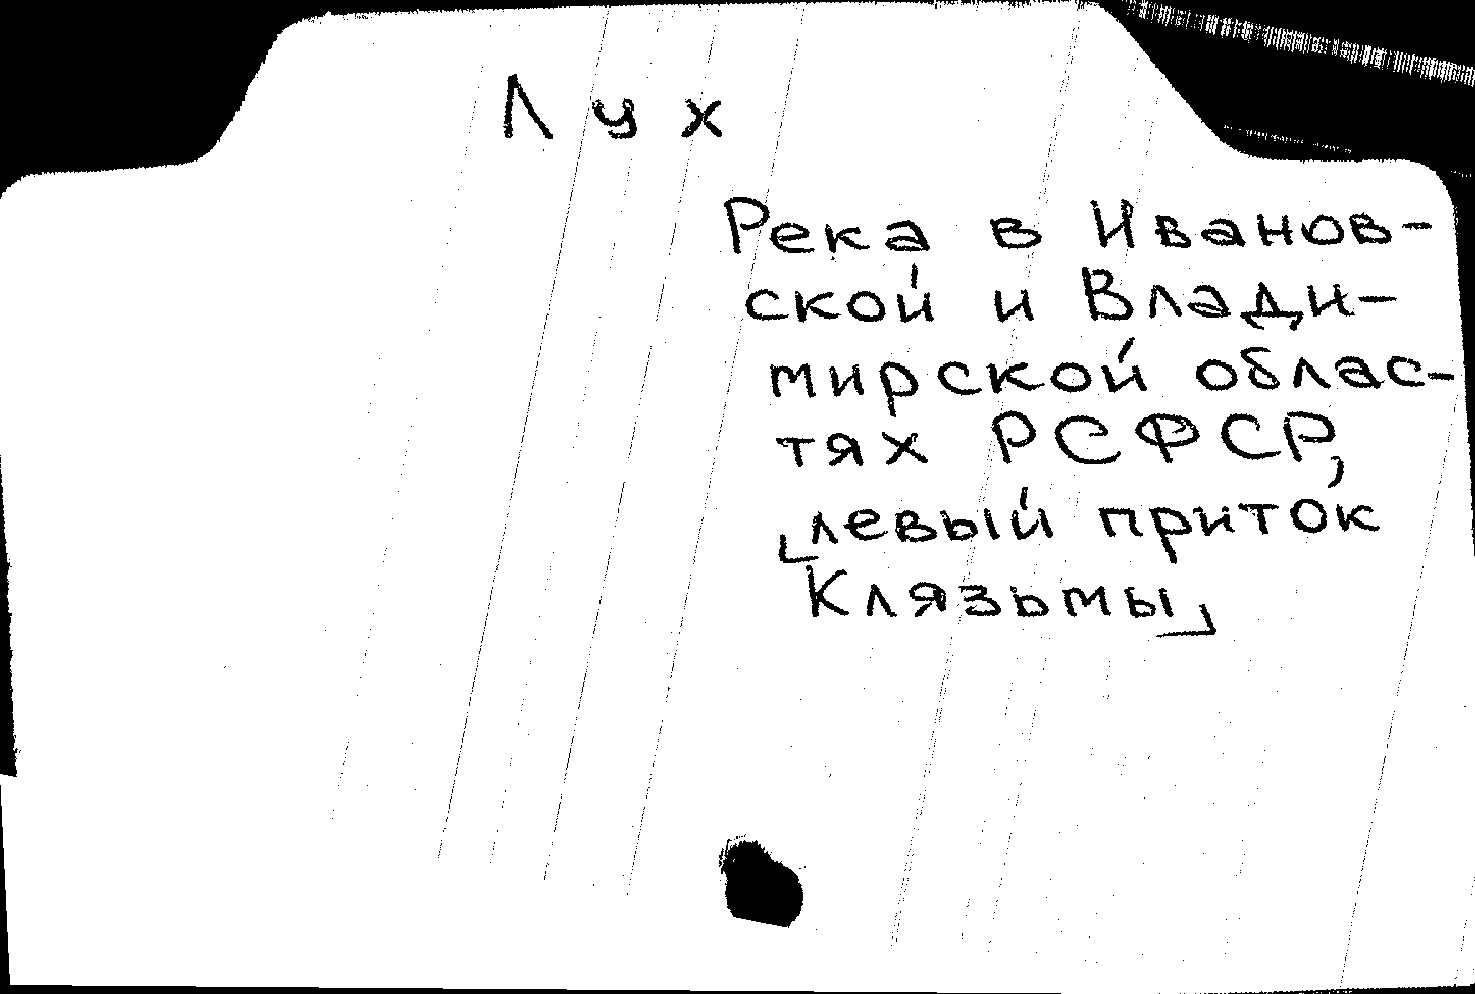 Лух
Река в Иванов-
ской и Влади-
мирской облас-
тях РСФСР,
левый приток
Клязьмы